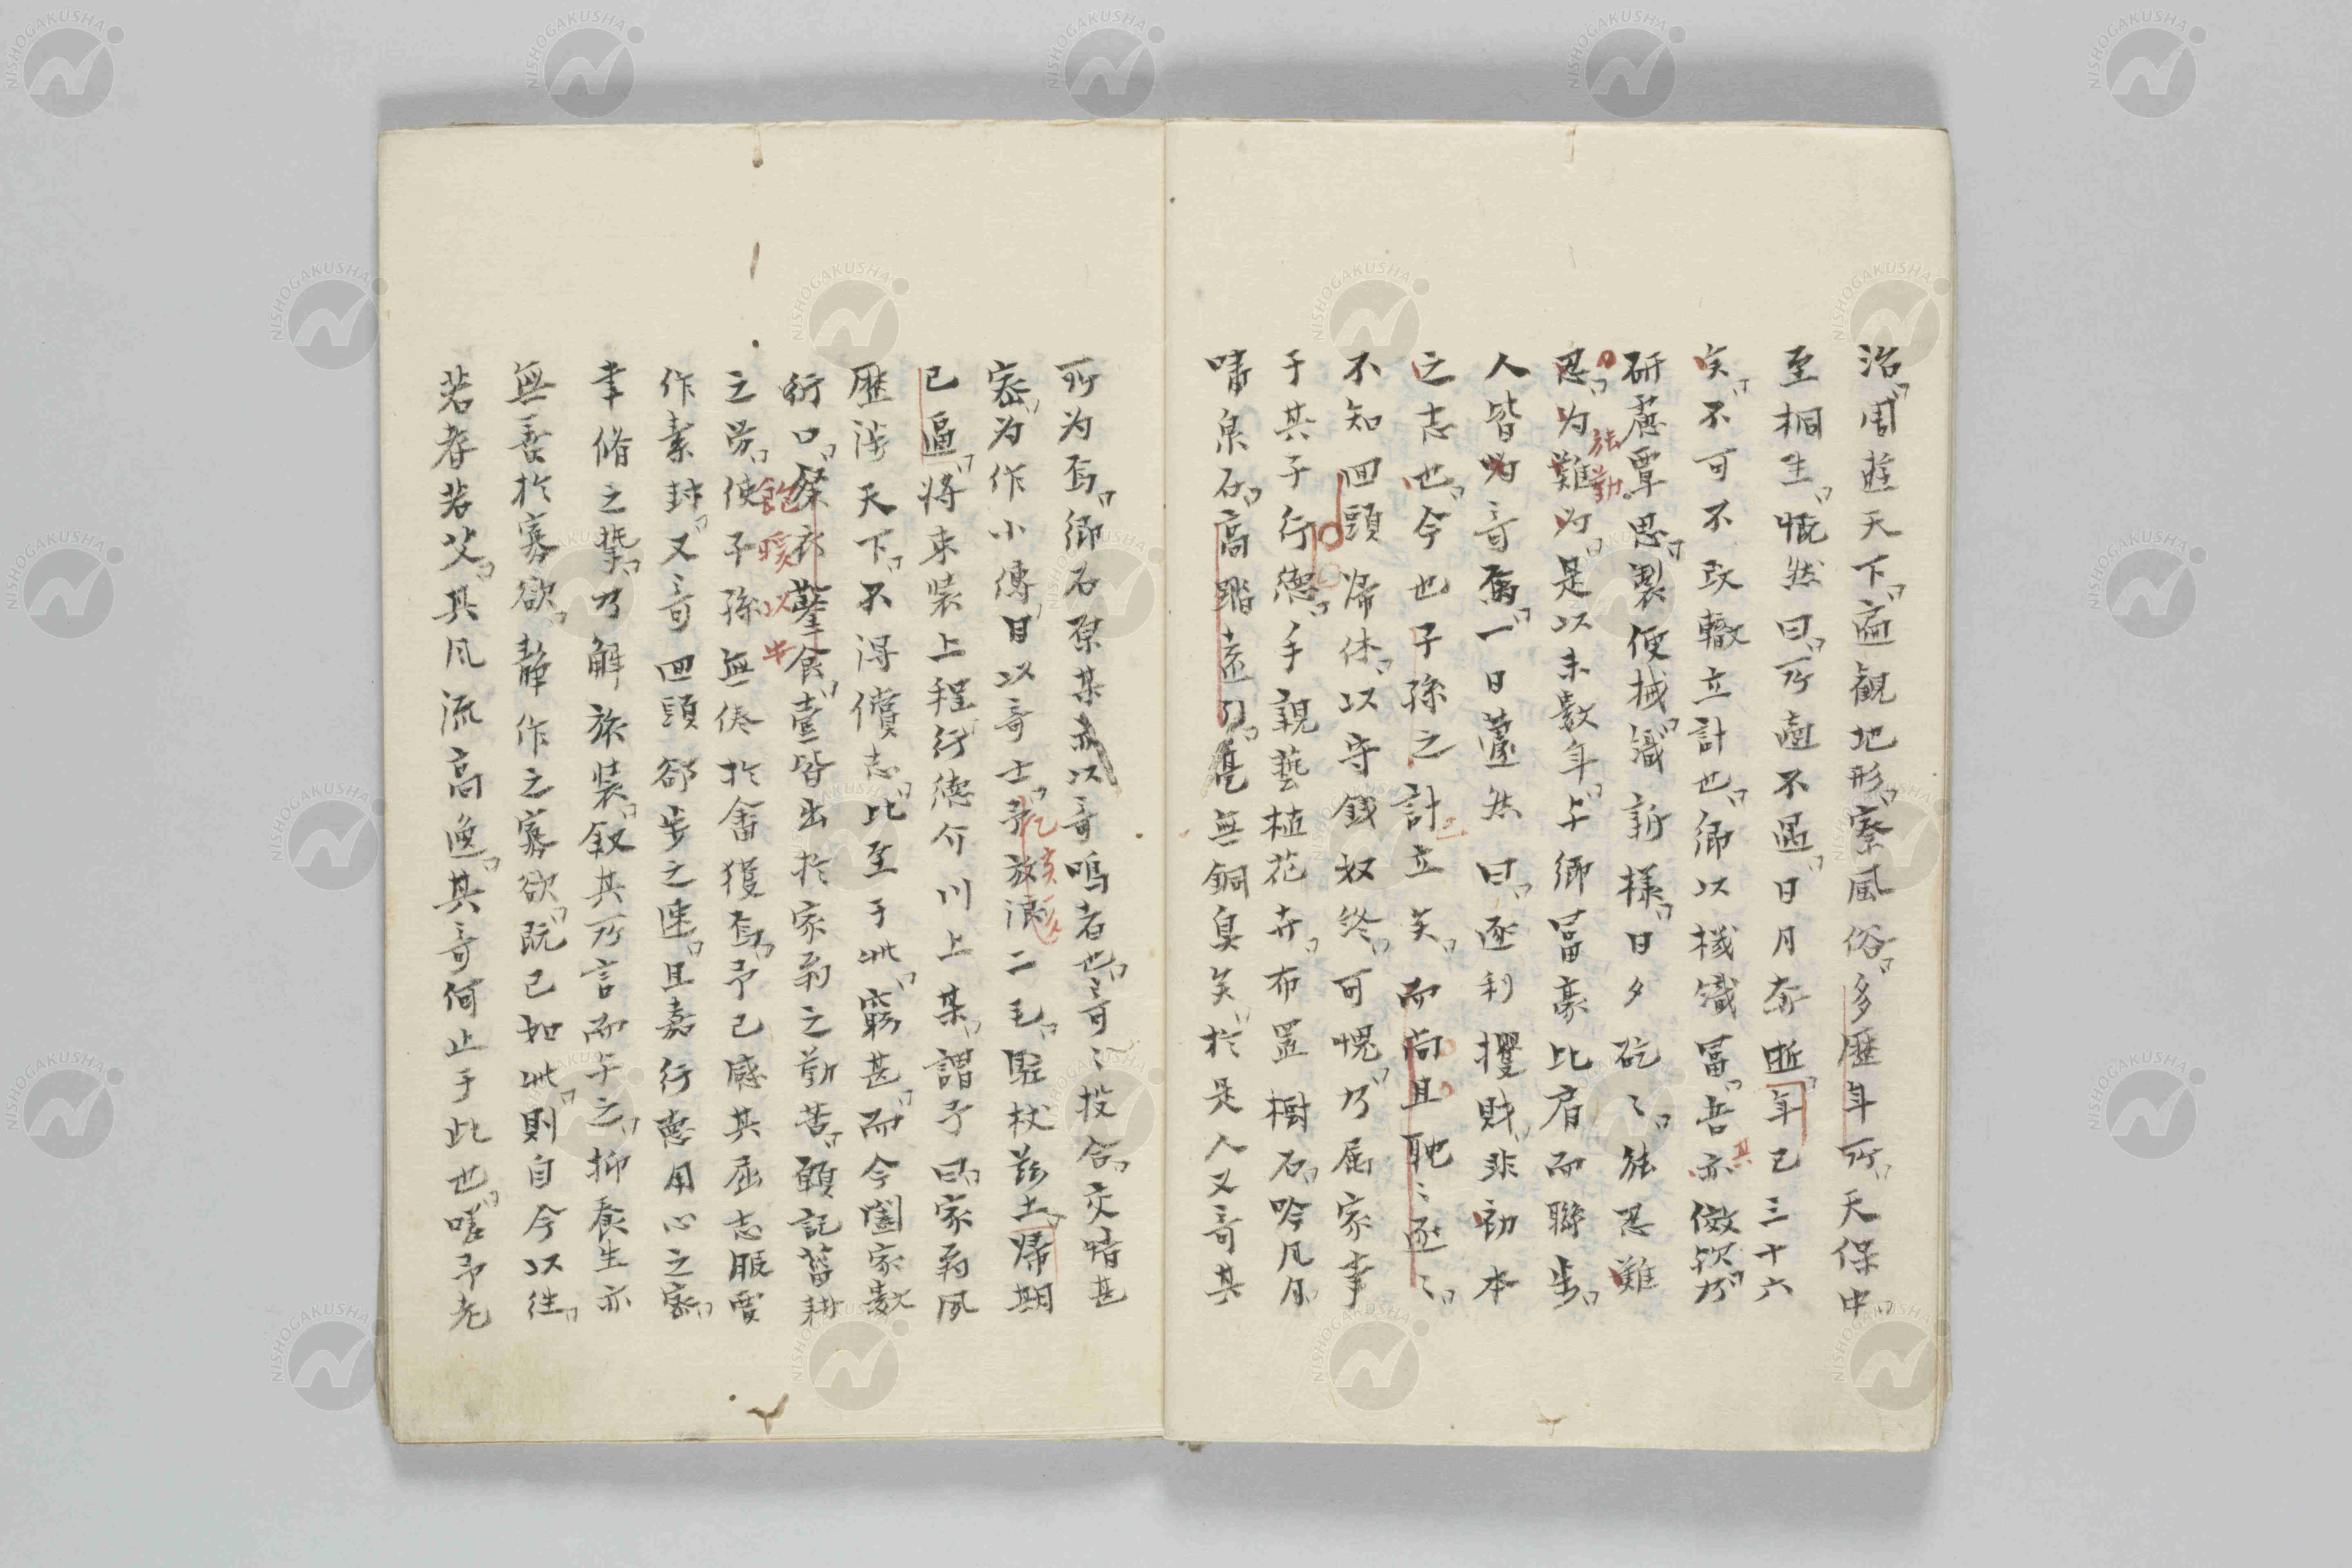 治周遊天下遍観地形察風俗多歴年所天保中
至桐生慨然曰所適不遇日月奔逝年已三十六
矣不可不改轍立計也郷以機織冨吾亦倣欤乃
研慮覃思製便械織新様日夕矻〻能忍難
忍为難为是以未数年与郷冨豪比肩而聯歩
人皆为竒焉一日蘧然曰逐利攫財非初本
之志也今也子孫之計立矣而尚且馳〻逐〻
不知回頭帰休以守銭奴終可愧乃属家事
于其子行徳手親藝植花卉布置樹石吟风月
嘯泉石高踏遠引無銅臭矣於是人又竒其
所为焉郷石原某亦以竒鳴者也竒〻投合交情甚
密为作小傳目以竒士予放浪二毛駐杖兹土帰期
已逼将束装上程行徳介川上某謂予曰家翁夙
歴渉天下不得償志比至于此窮甚而今闔家数
衍口粲衣鑿食壹皆出於家翁之勤苦顧記菑耕
之労使子孫無倦於畬獲焉予已感其屈志服賈
作素封又竒回頭郤歩之速且嘉行徳用心之密
幸脩之摯乃解旅装叙其所言而与之抑養生亦
無善於寡欲静作之寡欲既已如此則自今以往
若存若父其风流高逸其竒何止于此也嗟予老
能勤
其
乞亥
飽
煖以先
NISHOGAKUSHA